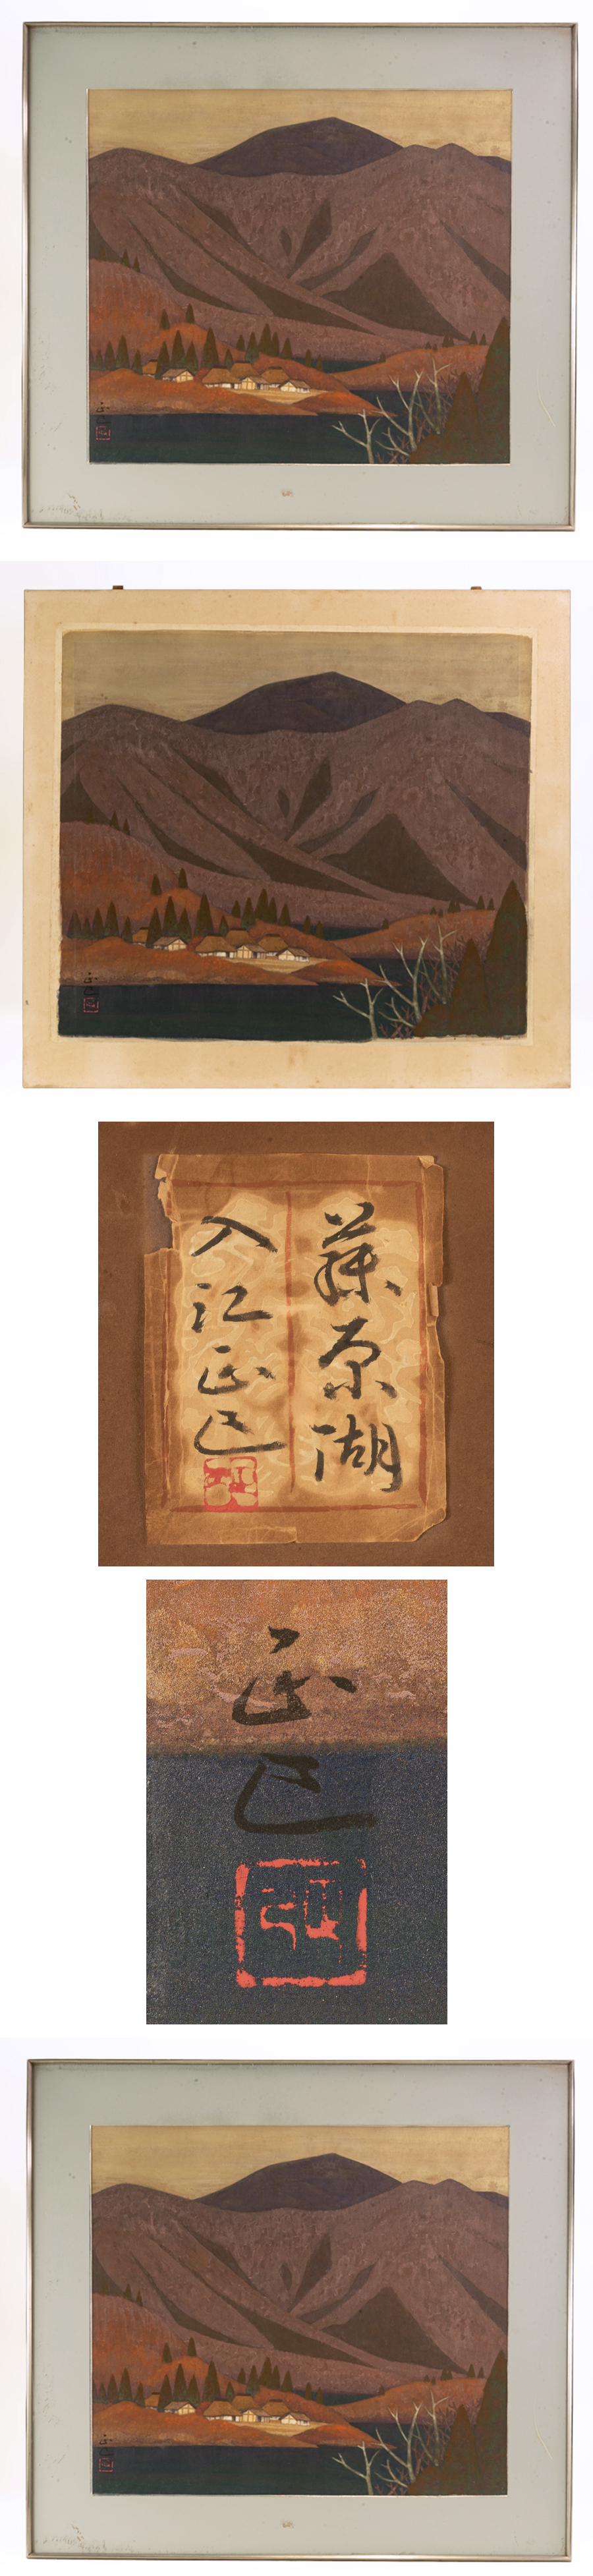 藤原湖
入江正巳
正巳